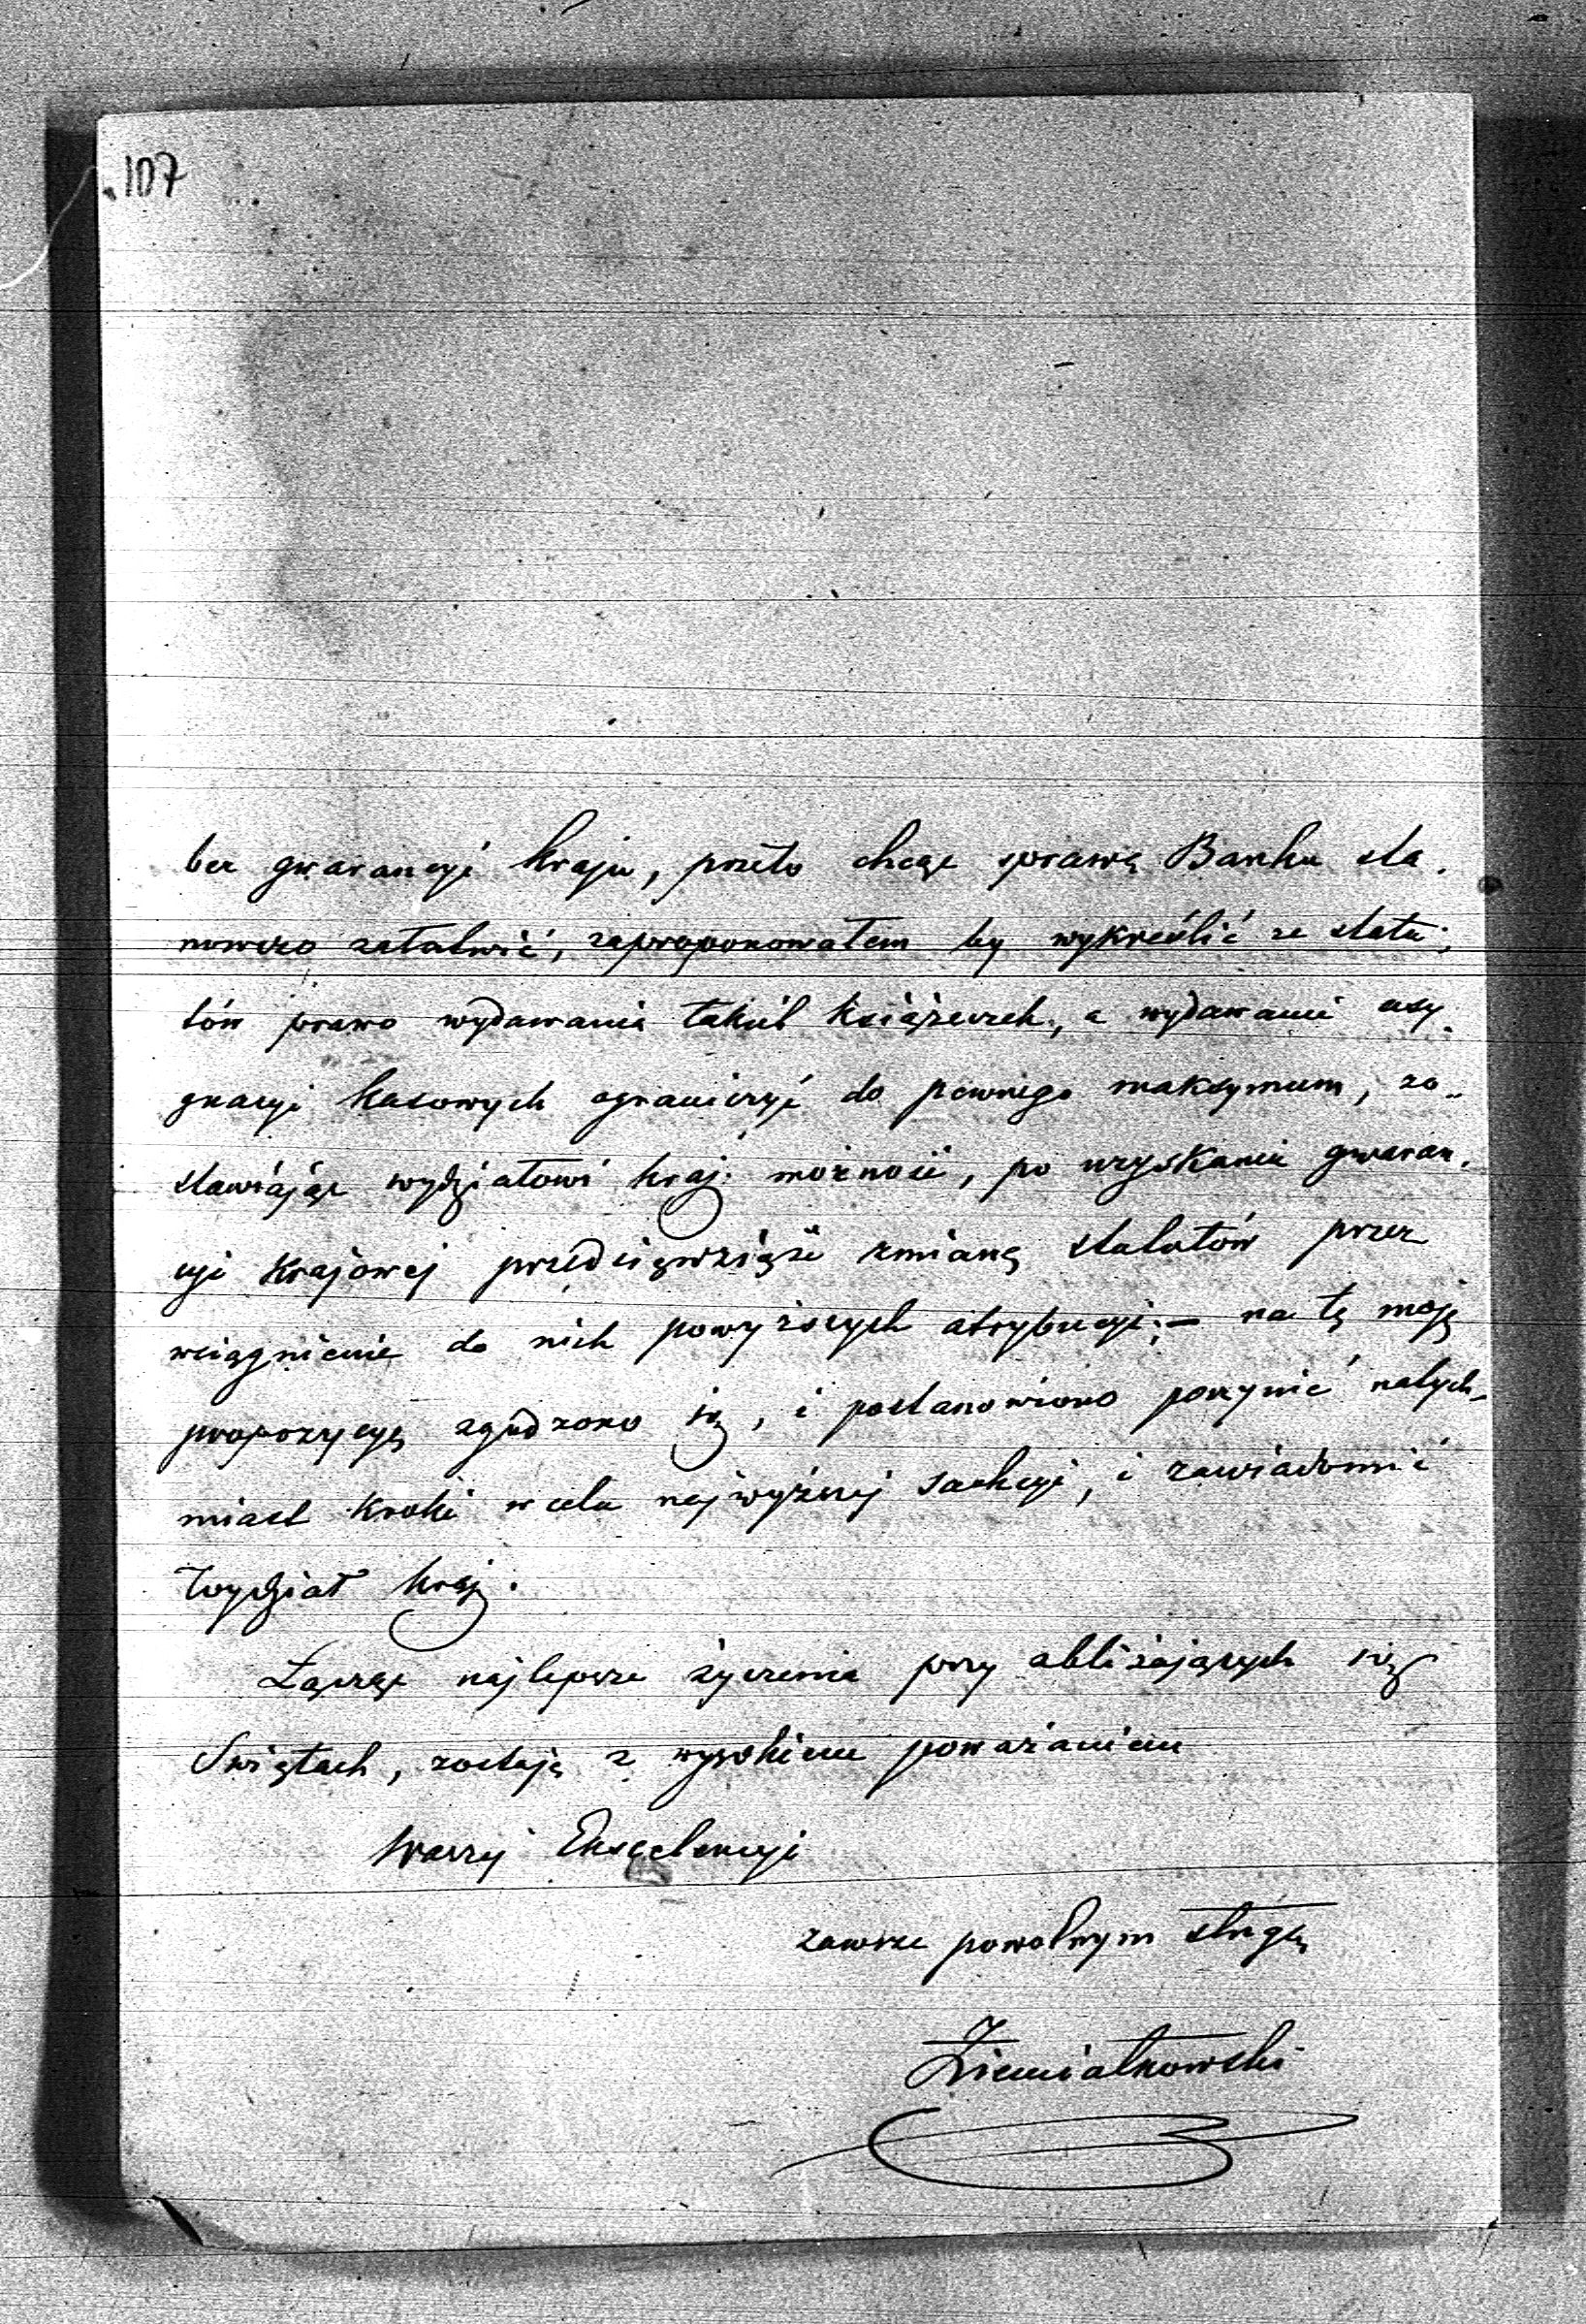 107
bez gwarancyi kraju, przeto chcąc sprawę Banku sta-
nowczo załatwić, zaproponowałem by wykreślić ze statu-
tów prawo wydawania takich książeczek, a wydawanie asy-
gnacyi kasowych ograniczyć do pewnego maksymum, zo-
stawiając wydziałowi kraj. możność, po uzyskaniu gwaran-
cyi krajowej przedsięwziąść zmianę statutów przez
wciągnienie do nich powyższych atrybucyi; – na tę moją
propozycyę zgodzono się, i postanowiono poczynić natych-
miast kroki w celu najwyższej sankcyi, i zawiadomić
Wydział kraj.
Łącząc najlepsze życzenia przy zbliżających się
Świętach, zostaję z wysokiem poważaniem
Waszej Ekscelencyi
zawsze powolnym sługą
Ziemiałkowski